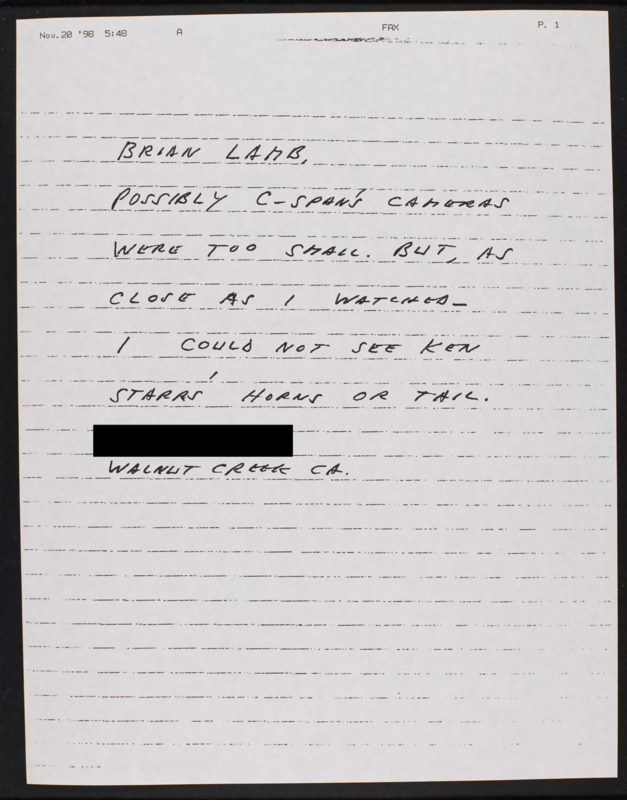 Nov.20 '98 5:48 A FAX P. 1
BRIAN LAMB,
POSSIBLY C-SPAN'S CAMERAS
WERE TOO SMALL. BUT, AS
CLOSE AS I WATCHED—
I COULD NOT SEE KEN
STARRS' HORNS OR TAIL.
WALNUT CREEK CA.